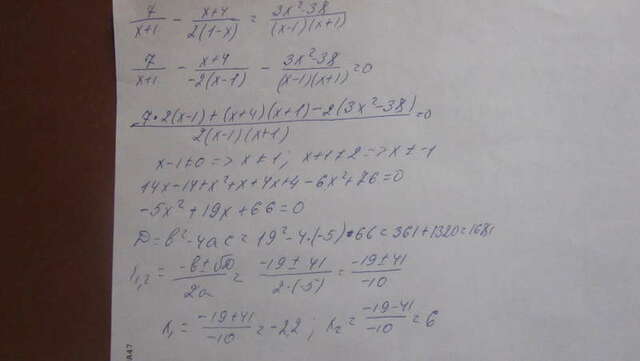 7/(x+1) - (x+4)/(2(1-x)) = (3x²-38)/((x-1)(x+1))
7/(x+1) - (x+4)/(-2(x-1)) - (3x²-38)/((x-1)(x+1)) = 0
(7·2(x-1)+(x+4)(x+1)-2(3x²-38))/(2(x-1)(x+1)) = 0
x-1≠0 => x≠1; x+1≠2 => x≠-1
14x-14+x²+x+4x+4-6x²+76=0
-5x²+19x+66=0
D=b²-4ac=19²-4·(-5)·66=361+1320=1681
x₁,₂ = (-b±√D)/(2a) = (-19±41)/(2·(-5)) = (-19±41)/(-10)
x₁ = (-19+41)/(-10) = -2,2; x₂ = (-19-41)/(-10) = 6